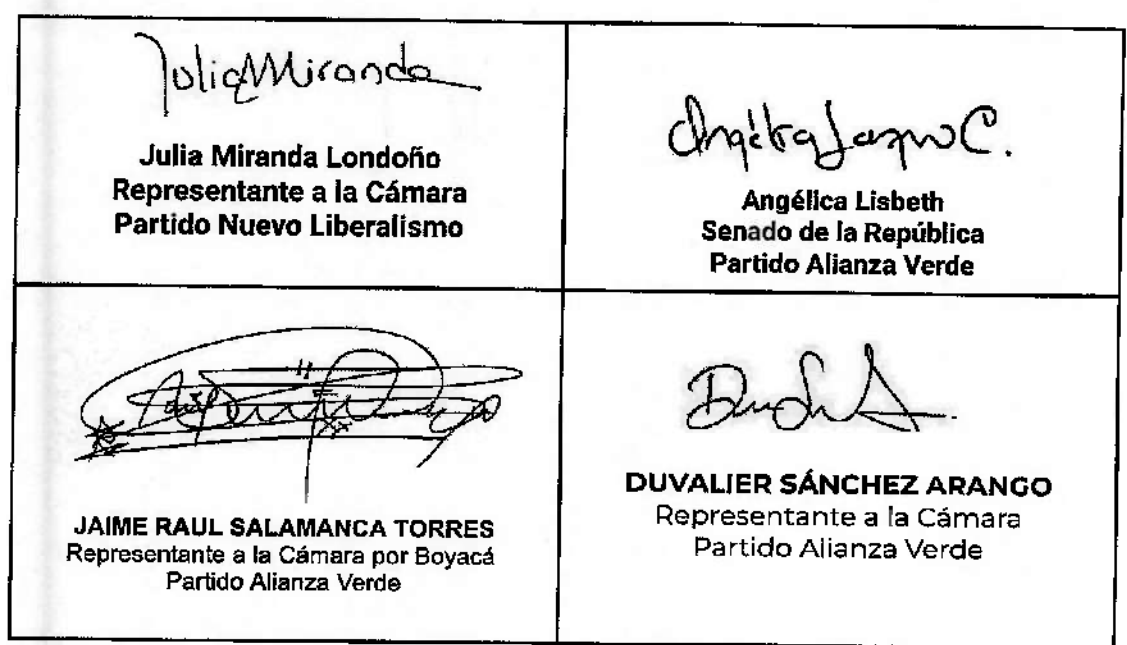 Julia Miranda
Julia Miranda Londoño
Representante a la Cámara
Partido Nuevo Liberalismo
Angélica Lozano C.
Angélica Lisbeth
Senado de la República
Partido Alianza Verde
JAIME RAUL SALAMANCA TORRES
Representante a la Cámara por Boyacá
Partido Alianza Verde
DUVALIER SÁNCHEZ ARANGO
Representante a la Cámara
Partido Alianza Verde